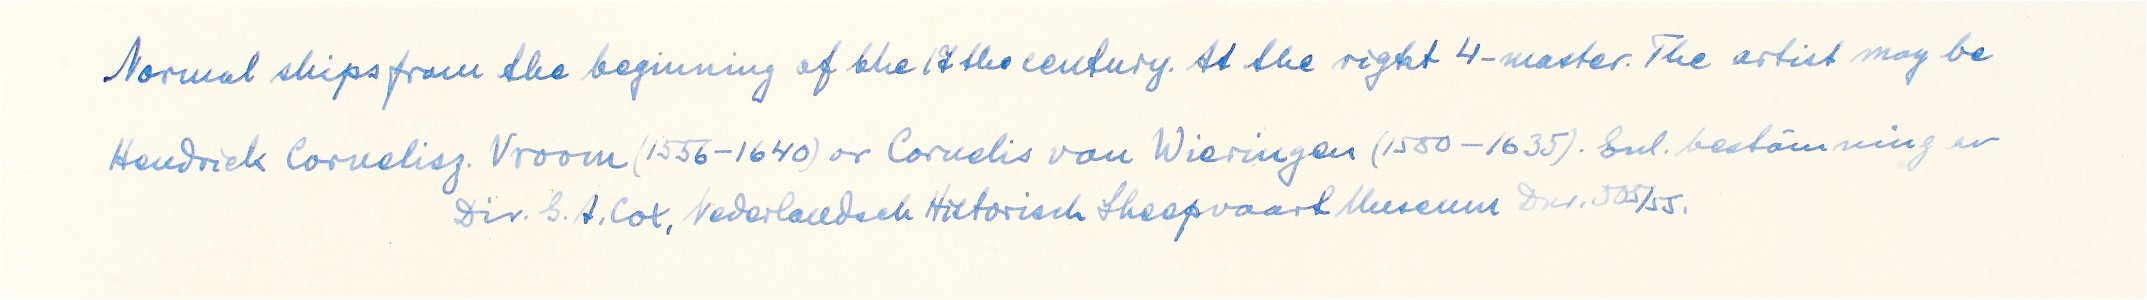 Normal ships from the beginning of the 17the century. At the right 4-master. The artist may be
Hendrick Cornelisz. Vroom (1556-1640) or Cornelis van Wieringen (1580-1635). Enl. bestämning av
Dir. G. A. Cox, Nederlandsch Historisch Sheepvaart Museum Dnr. 505/55.